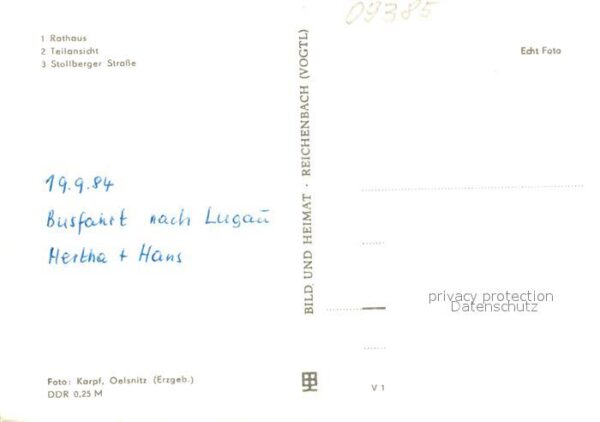 09385
1 Rathaus
2 Teilansicht
3 Stollberger Straße
Echt Foto
19.9.84
Busfahrt nach Lugau
Hertha + Hans
BILD UND HEIMAT · REICHENBACH (VOGTL)
privacy protection
Datenschutz
Foto: Karpf, Oelsnitz (Erzgeb.)
DDR 0,25 M
V 1